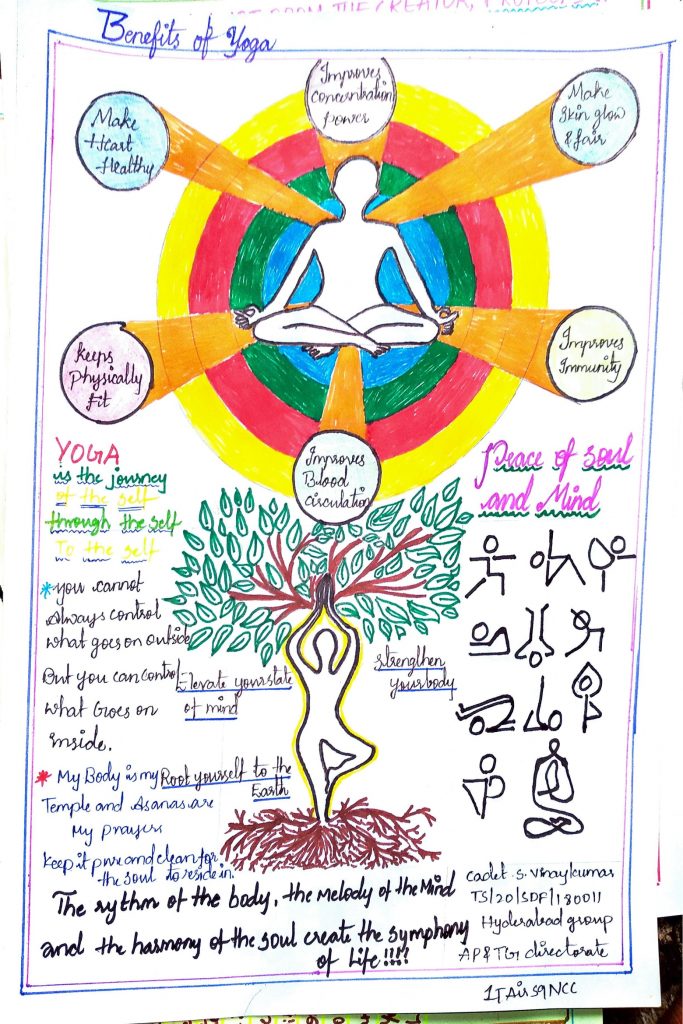 Benefits of Yoga
Improves
Concentration
power
Make
Heart
Healthy
Make
Skin glow
& fair
Keeps
Physically
fit
Improves
Immunity
Improves
Blood
Circulation
YOGA
is the journey
of the self
through the self
To the self
Peace of Soul
and Mind
* you cannot
Always control
what goes on outside
But you can control
what Goes on
inside.
Elevate your state
of mind
strengthen
your body
* My Body is my
Temple and Asanas are
My prayers
Keep it pure and clean for
the soul to reside in.
Root yourself to the
Earth
The rythm of the body, the Melody of the Mind
and the harmony of the soul create the symphony
of Life!!!!
Cadet S. Vinaykumar
TS/20/SDF/180011
Hyderabad group
AP&TG directorate
1T Air Sqn NCC